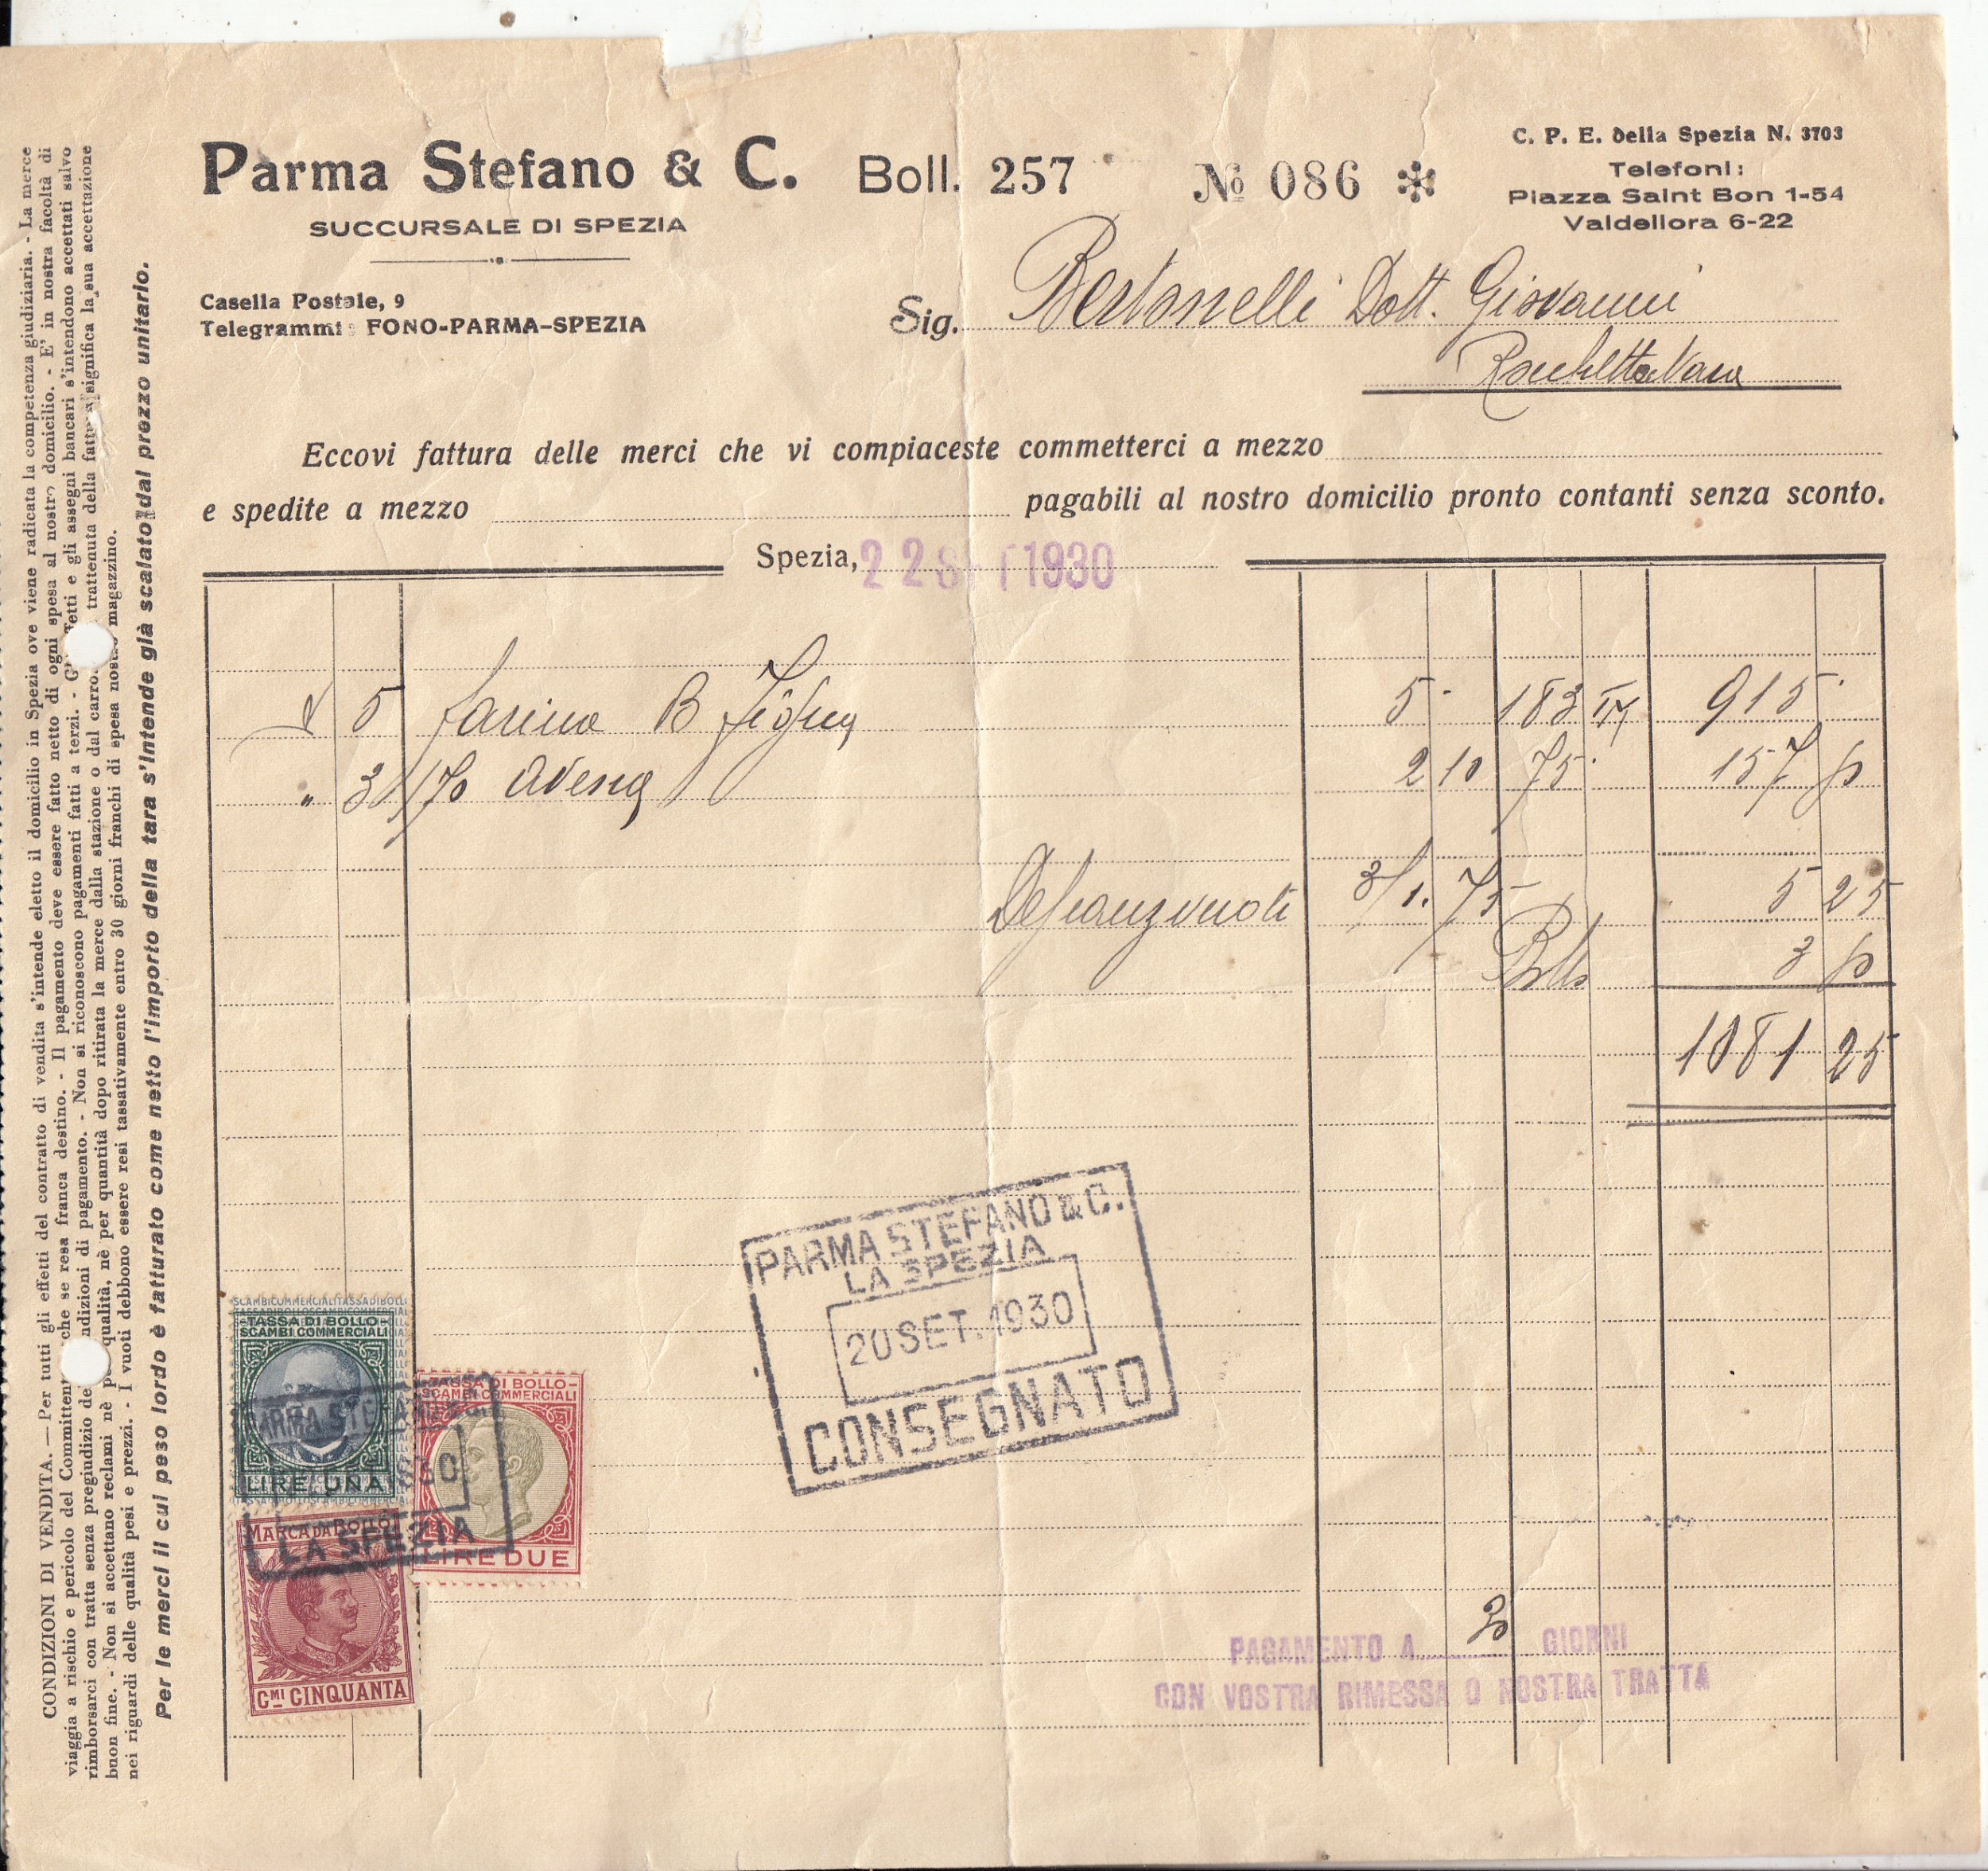 Parma Stefano & C.
SUCCURSALE DI SPEZIA
Casella Postale, 9
Telegrammi: FONO-PARMA-SPEZIA
Boll. 257 № 086 ✻
C. P. E. della Spezia N. 3703
Telefoni:
Piazza Saint Bon 1-54
Valdellora 6-22
Sig. Bertonelli Dott. Giovanni
Rocchetta Vara
Eccovi fattura delle merci che vi compiaceste commetterci a mezzo
e spedite a mezzo pagabili al nostro domicilio pronto contanti senza sconto.
Spezia, 22 SET 1930
5 farina B 5 183 915
" 3/170 avena 2 10 75 157
3/1.75 5 25
Bollo 3
1081 25
PARMA STEFANO & C.
LA SPEZIA
20 SET. 1930
CONSEGNATO
SCAMBI COMMERCIALI TASSA DI BOLLO
TASSA DI BOLLO
SCAMBI COMMERCIALI
LIRE UNA
TASSA DI BOLLO
SCAMBI COMMERCIALI
LIRE DUE
MARCA DA BOLLO
CMI CINQUANTA
PARMA STEFANO
LA SPEZIA
PAGAMENTO A 30 GIORNI
CON VOSTRA RIMESSA O NOSTRA TRATTA
CONDIZIONI DI VENDITA. — Per tutti gli effetti del contratto di vendita s'intende eletto il domicilio in Spezia ove viene radicata la competenza giudiziaria. - La merce
viaggia a rischio e pericolo del Committente che se resa franca destino. - Il pagamento deve essere fatto netto di ogni spesa al nostro domicilio. - E' in nostra facoltà di
rimborsarci con tratta senza pregiudizio delle condizioni di pagamento. - Non si riconoscono pagamenti fatti a terzi. - Gli effetti e gli assegni bancari s'intendono accettati salvo
buon fine. - Non si accettano reclami nè per qualità, nè per quantità dopo ritirata la merce dalla stazione o dal carro. trattenuta della fattura significa la sua accettazione
nei riguardi delle qualità pesi e prezzi. - I vuoti debbono essere resi tassativamente entro 30 giorni franchi di spesa nostro magazzino.
Per le merci il cui peso lordo è fatturato come netto l'importo della tara s'intende già scalato dal prezzo unitario.